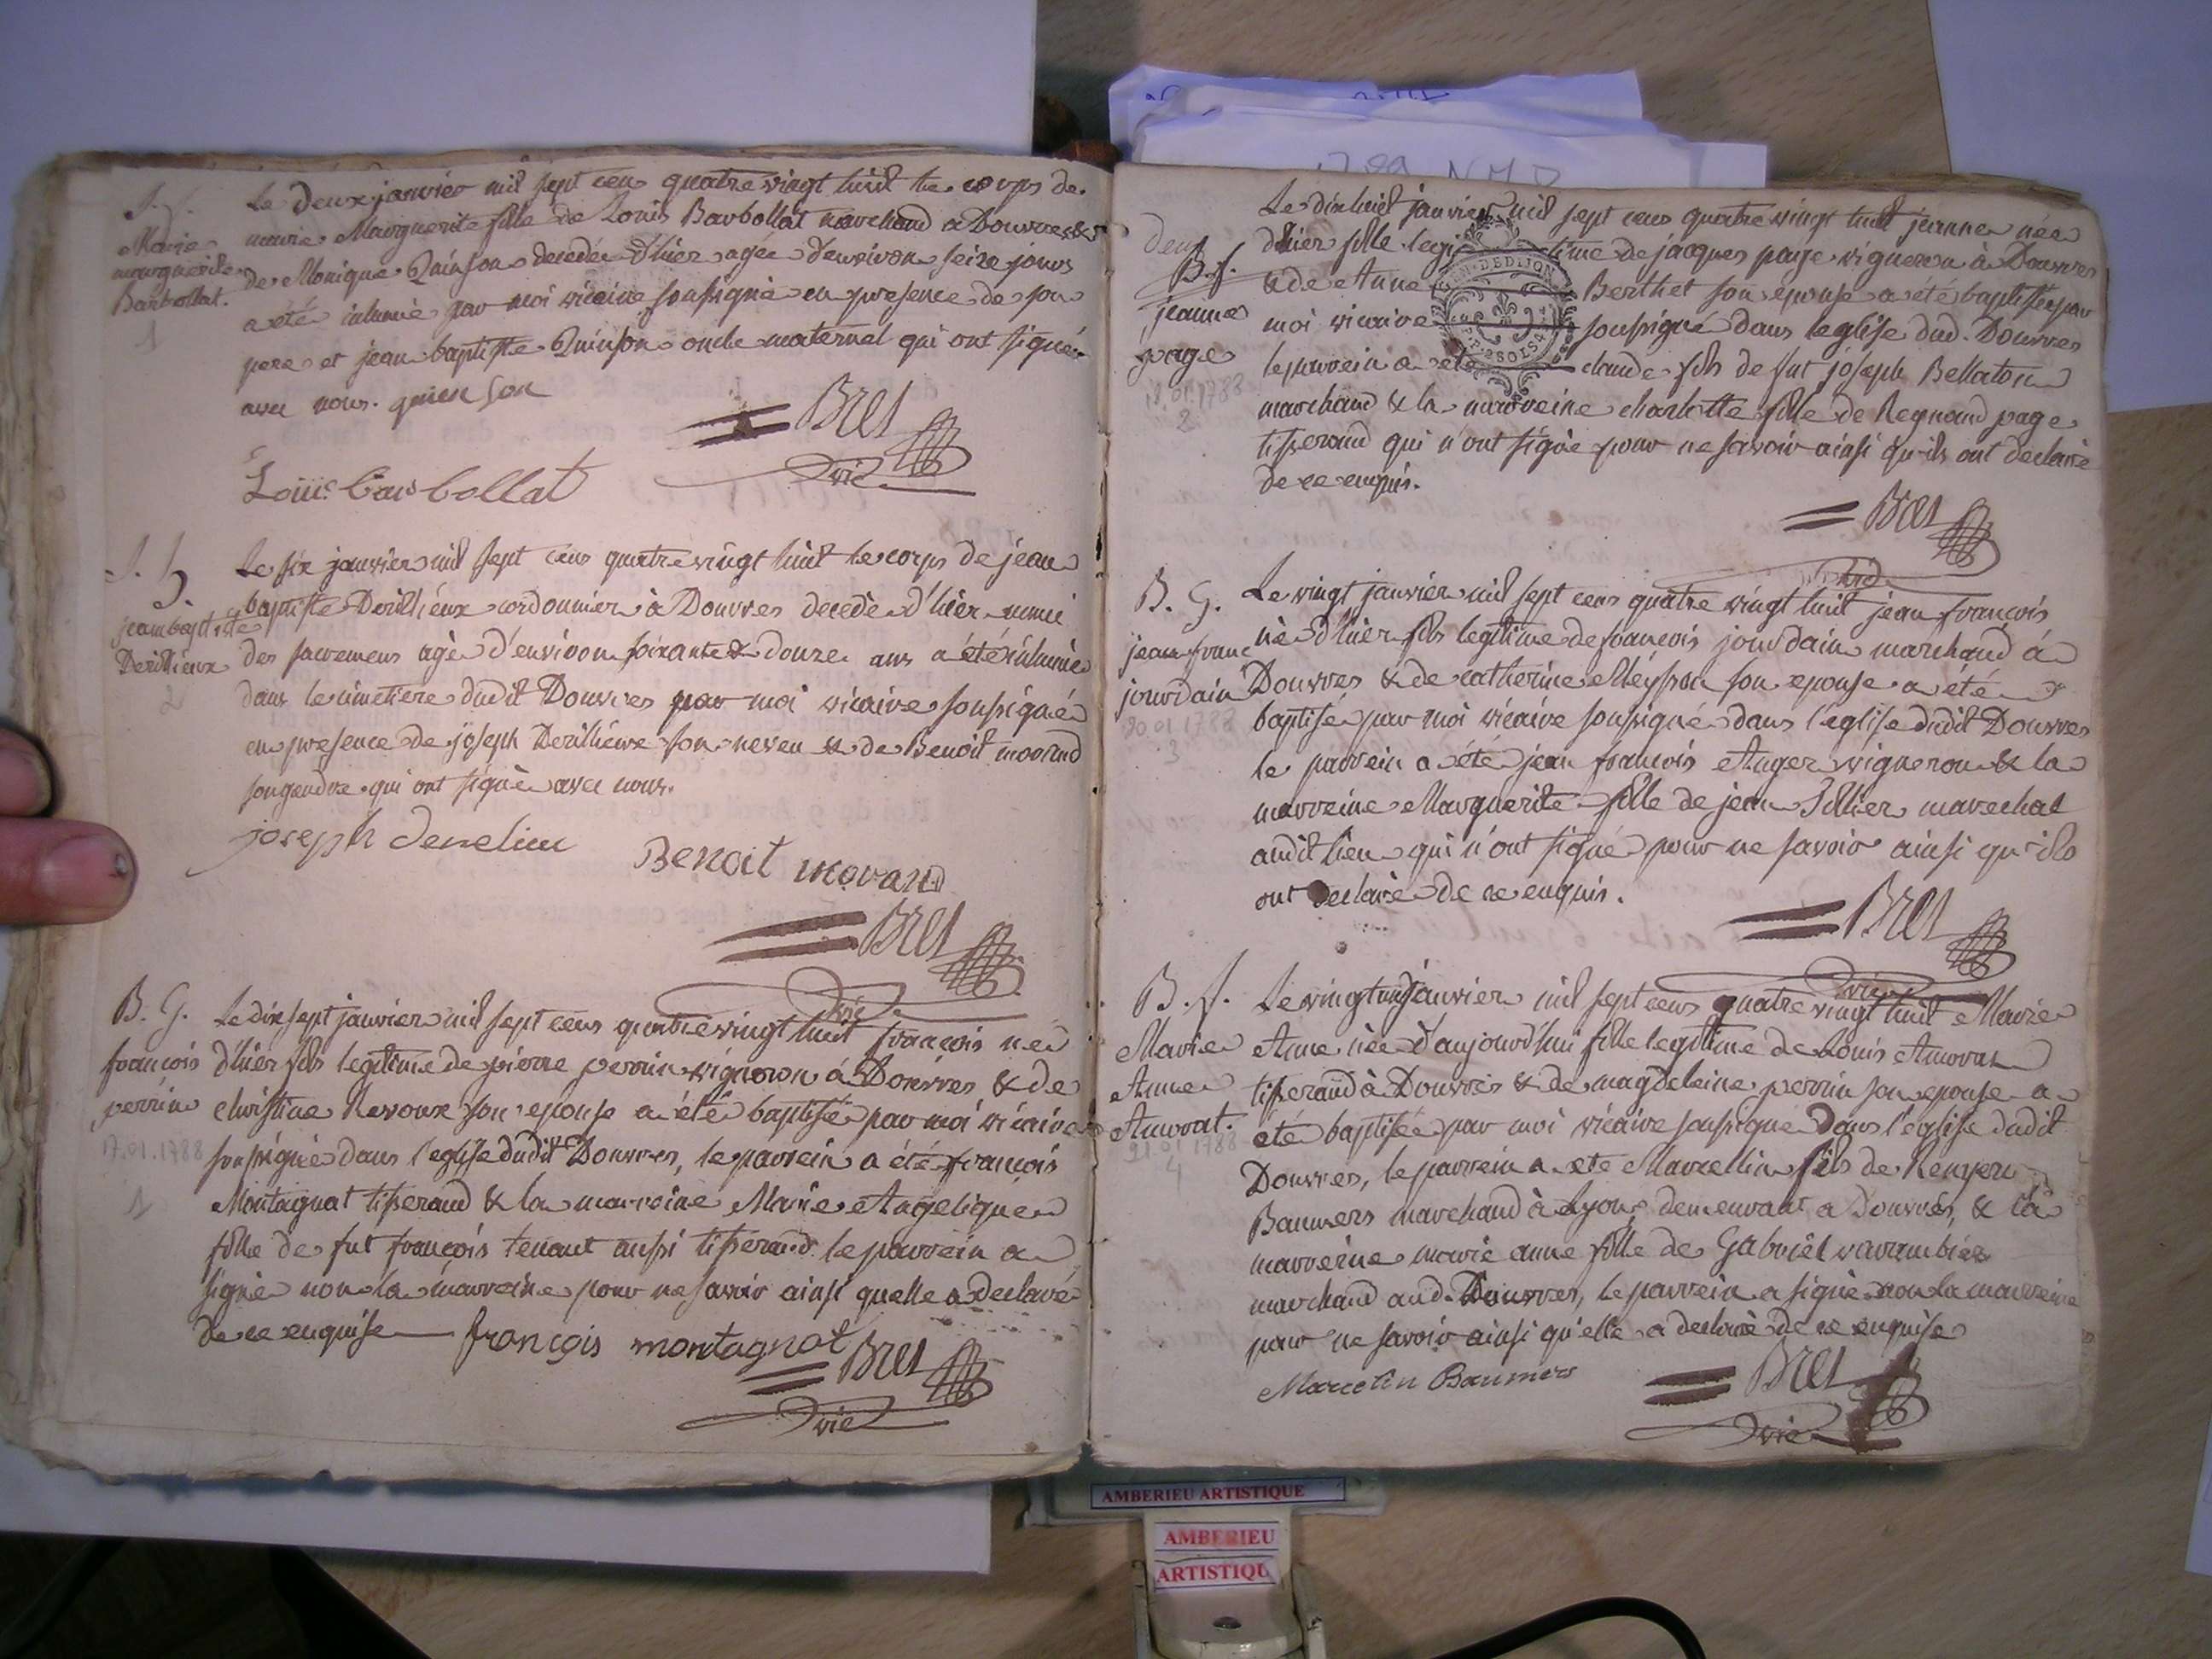 S. f.
Marie
marguerite
Barbollat.
1
Le deux janvier mil sept cens quatre vingt huit le corps de
marie Marguerite fille de Louis Barbollat marchand a Douvres &
de Monique Quinson decedée d'hier agee d'environ seize jours
a été inhumé par moi vicaire soussigné en presence de son
pere et jean baptiste Quinson oncle maternel qui ont signé
avec nous. quinson
Bret
vic
Louis barbollat
S. h.
jean baptiste
Derillieux
2
Le six janvier mil sept cens quatre vingt huit le corps de jean
baptiste Derillieux cordonnier à Douvres decedé d'hier muni
des sacremens agé d'environ soixante & douze ans a été inhumé
dans le cimetiere dudit Douvres par moi vicaire soussigné
en presence de joseph Derillieux son neveu & de Benoit morand
son gendre qui ont signé avec nous.
joseph
Benoit morand
Bret
vic
B. G.
françois
perrin
17.01.1788
1
Le dix sept janvier mil sept cens quatre vingt huit françois né
d'hier fils legitime de pierre perrin vigneron à Douvres & de
christine Revoux son epouse a été baptisé par moi vicaire
soussigné dans l'eglise dudit Douvres, le parrein a été françois
Montagnat tisserand & la marreine Marie Angelique
fille de fut françois tenant aussi tisserand. le parrein a
signé non la marreine pour ne savoir ainsi quelle a declaré
de ce enquise françois montagnat
Bret
vic
1789 NMD
deux
B. f.
jeanne
page
18.01.1788
2
GEN. DE DIJON
Le dix huit janvier mil sept cens quatre vingt huit jeanne née
d'hier fille legitime de jacques page vigneron à Douvres
& de Anne Berthet son epouse a été baptisée par
moi vicaire soussigné dans leglise dud. Douvres
le parrein a été claude fils de fut joseph Bellaton
marchand & la marreine charlotte fille de Regnaud page
tisserand qui n'ont signé pour ne savoir ainsi qu'ils ont declaré
de ce enquis.
Bret
vic
B. G.
jean franc
jourdain
20.01.1788
3
Le vingt janvier mil sept cens quatre vingt huit jean françois
né d'hier fils legitime de françois jourdain marchand à
Douvres & de catherine Meysson son epouse a été
baptisé par moi vicaire soussigné dans l'eglise dudit Douvres
le parrein a été jean françois Anger vigneron & la
marreine Marguerite fille de jean marechal
audit lieu qui n'ont signé pour ne savoir ainsi qu'ils
ont declaré de ce enquis.
Bret
vic
B. f.
Marie
Anne
Amorat.
21.01.1788
4
Le vingt un janvier mil sept cens quatre vingt huit Marie
Anne née d'aujourd'hui fille legitime de Louis Amorat
tisserand à Douvres & de magdeleine perrin son epouse a
été baptisée par moi vicaire soussigné dans l'eglise dudit
Douvres, le parrein a été Marcellin fils de
Baumers marchand à Lyon, demeurant a Douvres, & la
marreine marie anne fille de Gabriel varambier
marchand aud. Douvres, le parrein a signé non la marreine
pour ne savoir ainsi qu'elle a declaré de ce enquise
Marcelin Baumers
Bret
vic
AMBERIEU ARTISTIQUE
AMBERIEU
ARTISTIQU